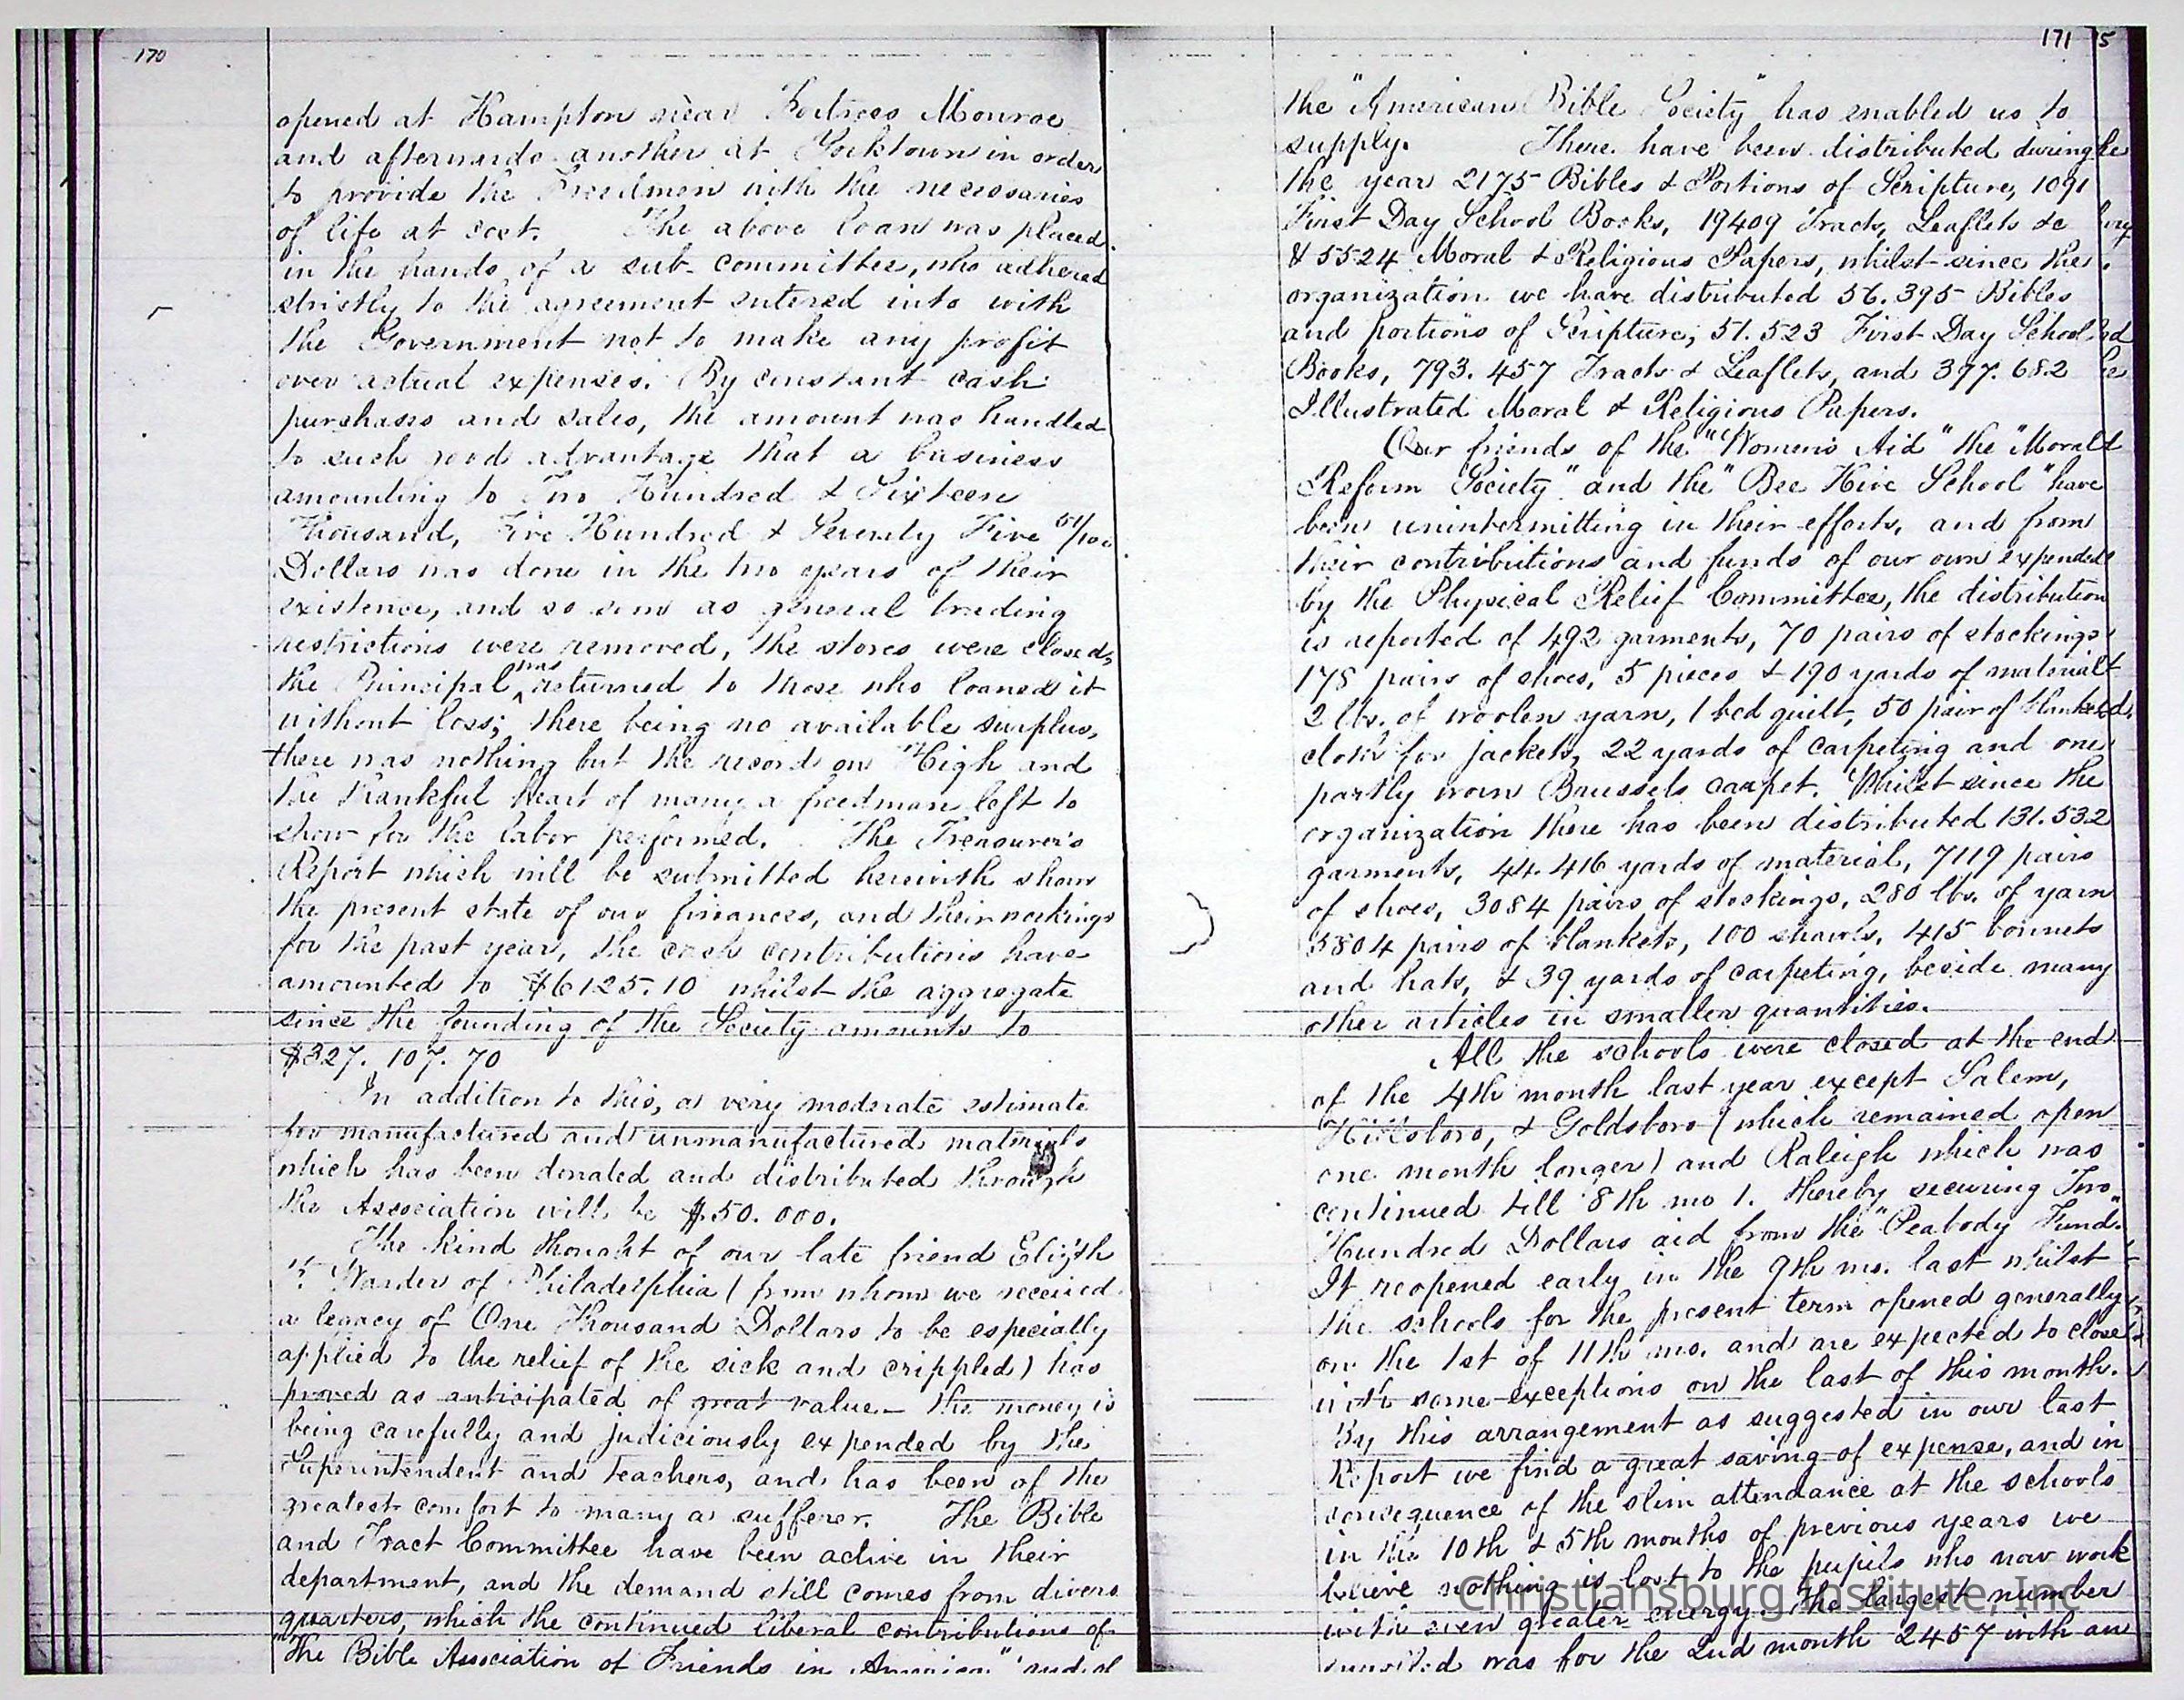 170
opened at Hampton near Fortress Monroe
and afterwards another at Yorktown in order
to provide the Freedmen with the necessaries
of life at cost. The above loan was placed
in the hands of a sub-committee, who adhered
strictly to the agreement entered into with
the Government not to make any profit
over actual expenses. By constant cash
purchases and sales, the amount was handled
to such good advantage that a business
amounting to Two Hundred & Sixteen
Thousand, Five Hundred & Seventy Five 51/100
Dollars was done in the two years of their
existence, and so soon as general trading
restrictions were removed, the stores were closed,
the Principal was returned to those who loaned it
without loss; there being no available surplus,
there was nothing but the record on High and
the thankful heart of many a freedman left to
show for the labor performed. The Treasurer's
Report which will be submitted herewith shows
the present state of our finances, and their workings
for the past year, the cash contributions have
amounted to $6125.10 whilst the aggregate
since the founding of the Society amounts to
$327.107.70
In addition to this, a very moderate estimate
for manufactured and unmanufactured materials
which has been donated and distributed through
the Association will be $50.000.
The kind thought of our late friend Elizth
Warder of Philadelphia (from whom we received
a legacy of One Thousand Dollars to be especially
applied to the relief of the sick and crippled) has
proved as anticipated of great value. – the money is
being carefully and judiciously expended by the
Superintendent and teachers, and has been of the
greatest comfort to many a sufferer. The Bible
and Tract Committee have been active in their
department, and the demand still comes from divers
quarters, which the continued liberal contributions of
"The Bible Association of Friends in America" and of
171 5
the "American Bible Society" has enabled us to
supply. There have been distributed during
the year 2175 Bibles & Portions of Scripture, 1091
First Day School Books, 19409 Tracts, Leaflets &c
& 5524 Moral & Religious Papers, whilst since the
organization we have distributed 56.395 Bibles
and portions of Scripture, 51.523 First Day School
Books, 793.457 Tracts & Leaflets, and 397.682
Illustrated Moral & Religious Papers.
Our friends of the "Women's Aid" the "Moral
Reform Society" and the "Bee Hive School" have
been unintermitting in their efforts, and from
their contributions and funds of our own expended
by the Physical Relief Committee, the distribution
is reported of 492 garments, 70 pairs of stockings
178 pairs of shoes, 5 pieces & 190 yards of material
2 lbs. of woolen yarn, 1 bed quilt, 50 pair of blankets,
cloth for jackets, 22 yards of carpeting and one
partly worn Brussels carpet. Whilst since the
organization there has been distributed 131.532
garments, 44.416 yards of material, 7119 pairs
of shoes, 3084 pairs of stockings, 280 lbs. of yarn
5804 pairs of blankets, 100 shawls, 415 bonnets
and hats, & 39 yards of carpeting, beside many
other articles in smaller quantities.
All the schools were closed at the end
of the 4th month last year except Salem,
Hillsboro, & Goldsboro (which remained open
one month longer) and Raleigh which was
continued till 8th mo 1. thereby securing Two
Hundred Dollars aid from the "Peabody Fund."
It reopened early in the 9th mo. last whilst
the schools for the present term opened generally
on the 1st of 11th mo. and are expected to close
with some exceptions on the last of this month.
By this arrangement as suggested in our last
Report we find a great saving of expense, and in
consequence of the slim attendance at the schools
in the 10th & 5th months of previous years we
believe nothing is lost to the pupils who now work
with even greater energy. The largest number
enrolled was for the 2nd month 2457 with an
Christiansburg Institute, Inc